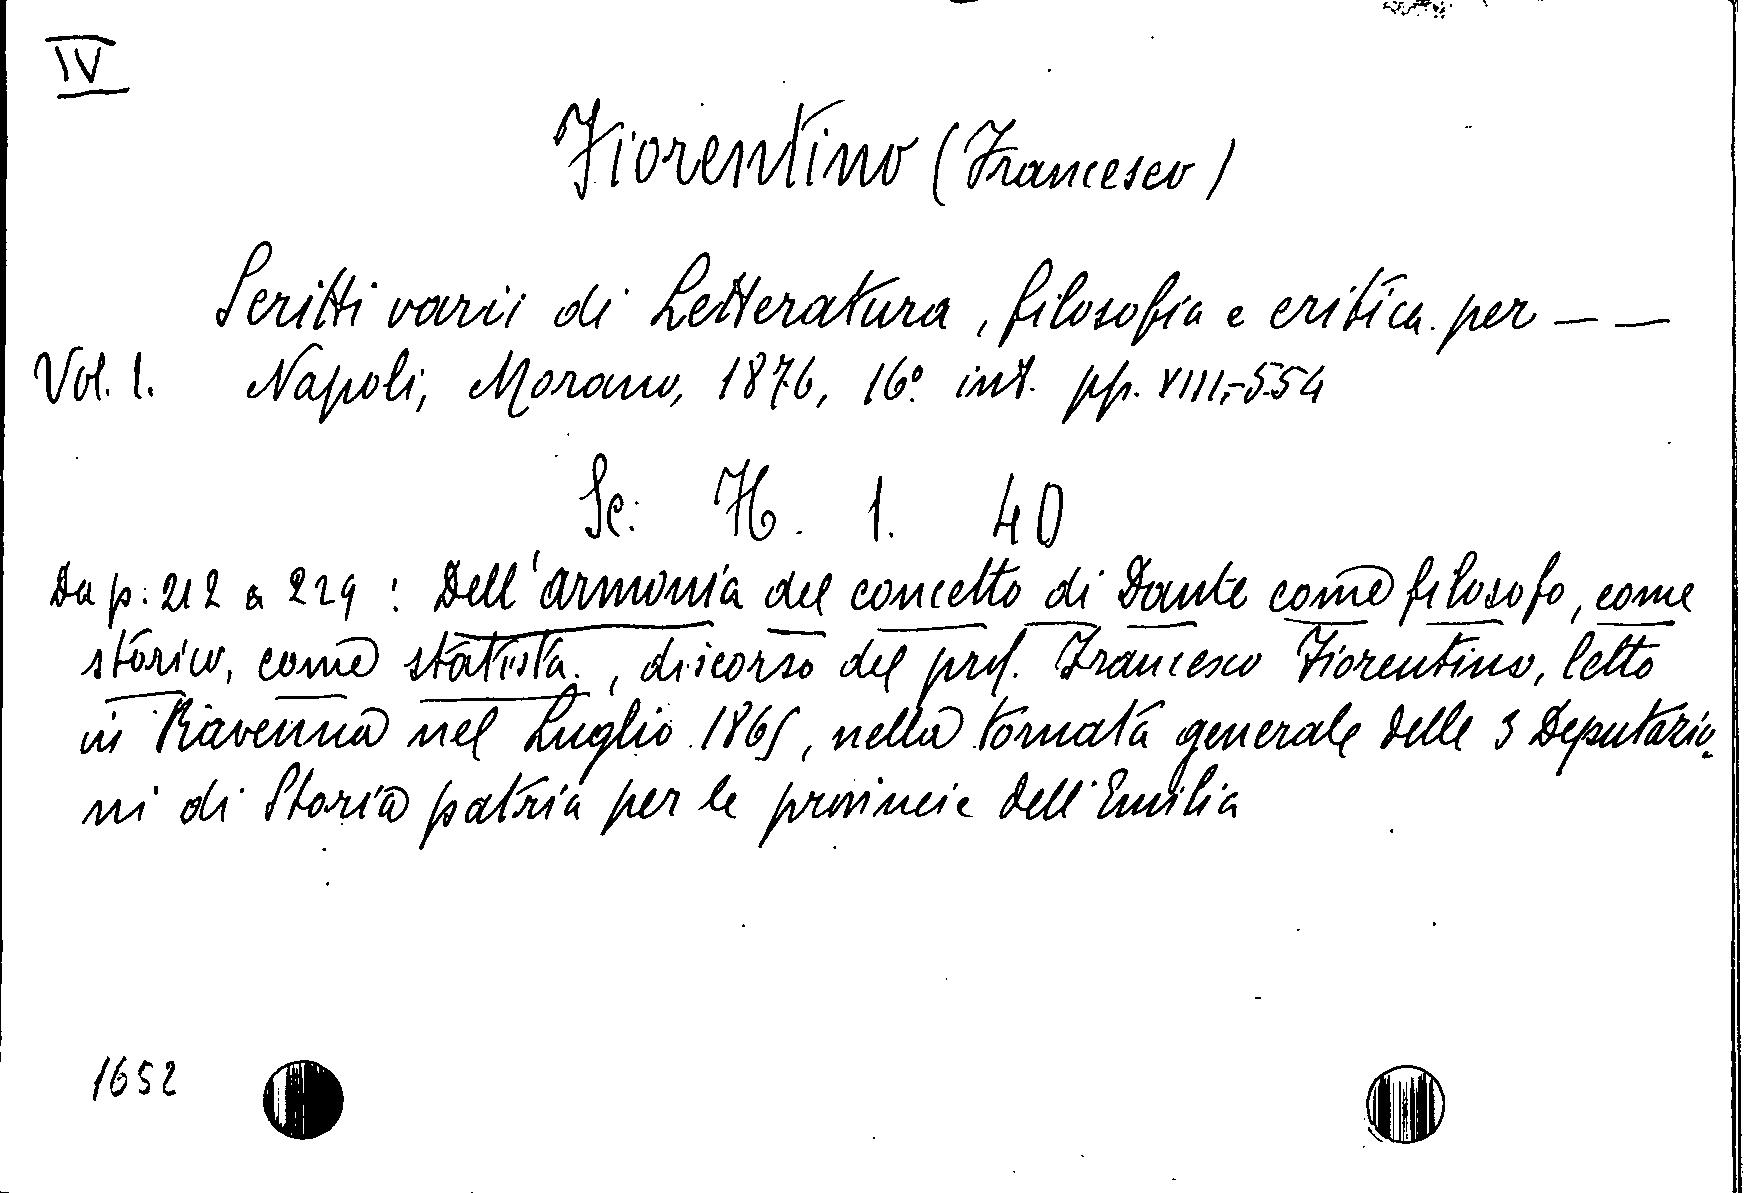 IV
Fiorentino (Francesco)
Scritti varii di Letteratura, filosofia e critica. per — —
Vol. 1. Napoli, Morano, 1876, 16º int. pp. VIII,-554
Sc. H. 1. 40
Da p. 212 a 229: Dell'armonia del concetto di Dante come filosofo, come
storico, come statista., discorso del prof. Francesco Fiorentino, letto
in Ravenna nel Luglio 1865, nella tornata generale delle 3 Deputazio-
ni di Storia patria per le provincie dell'Emilia
1652